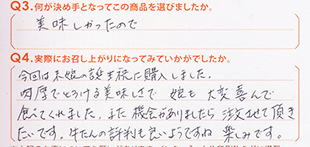 Q3.何が決め手となってこの商品を選びましたか。
美味しかったので
Q4.実際にお召し上がりになってみていかがでしたか。
今回は末娘の誕生祝に購入しました。
肉厚でとろける美味しさで 娘も大変喜んで
食べてくれました。また機会がありましたら 注文させて頂き
たいです。牛たんの評判も良いようですね 楽しみです。